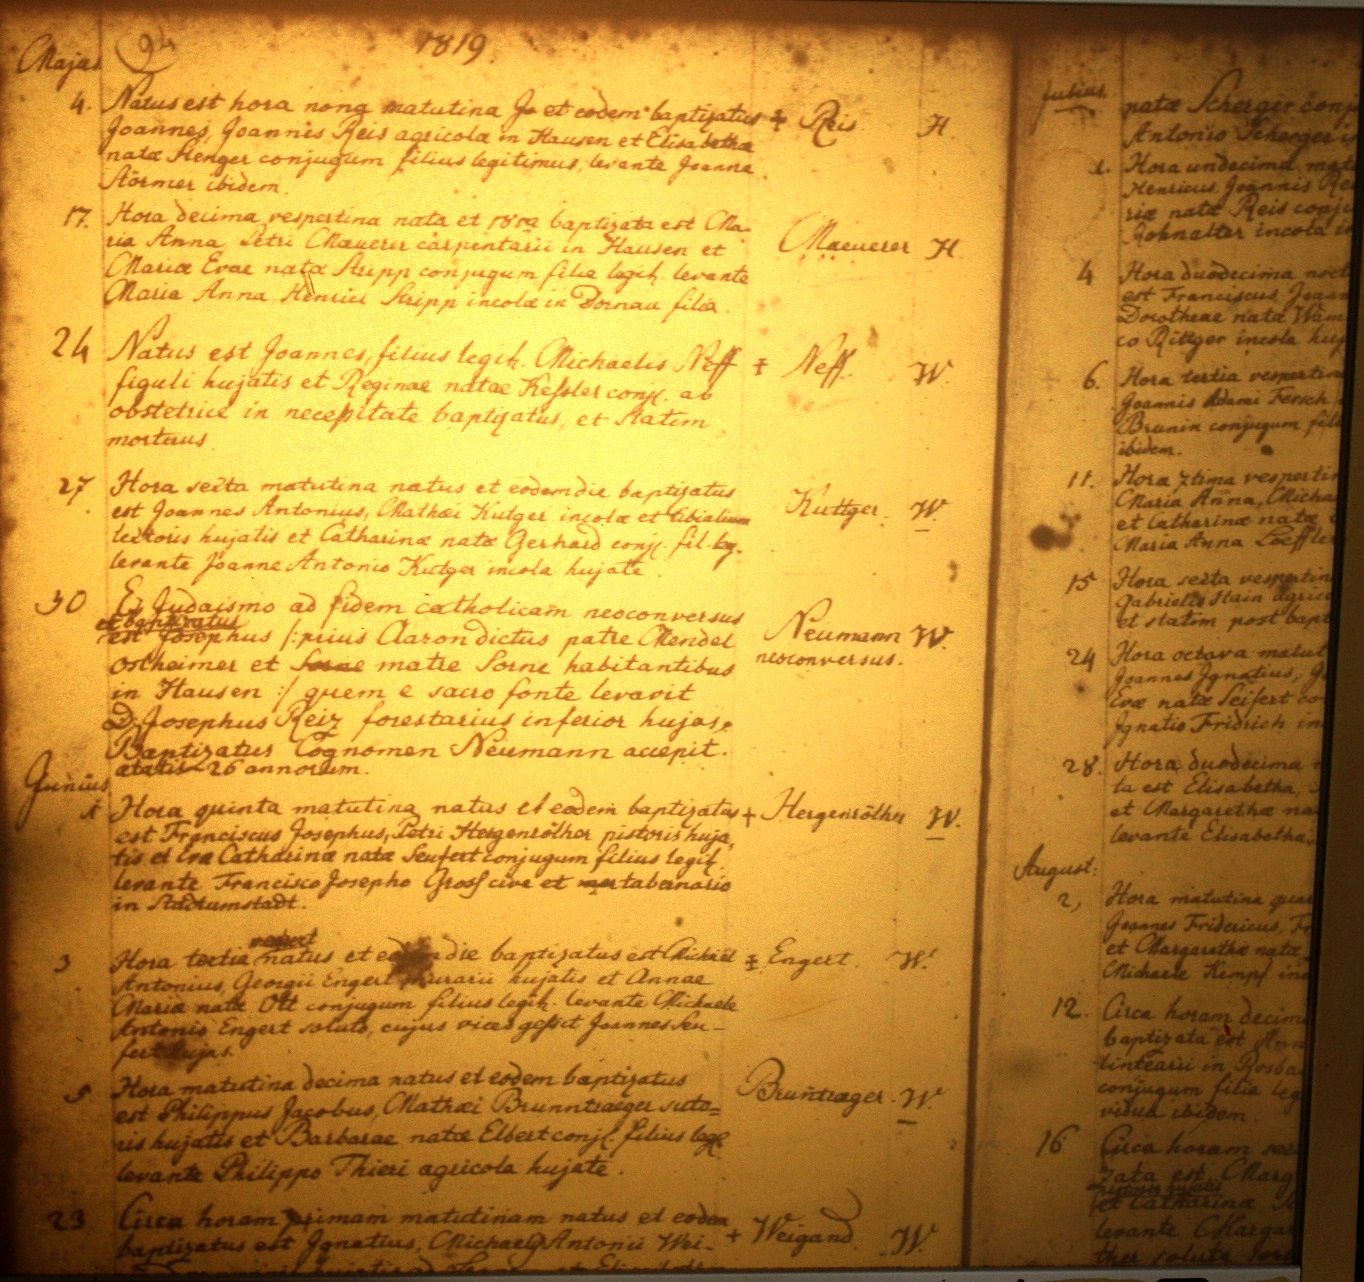 Majus 94 1819.
4. Natus est hora nona matutina et eodem baptizatus ‡ Reis H.
Joannes, Joannis Reis agricolæ in Hausen et Elisabethæ
natæ Stenger conjugum filius legitimus, levante Joanne
Störmer ibidem.
17. Hora decima vespertina nata et baptizata est Ma- Maeuerer H.
ria Anna Petri Maeuerer carpentarii in Hausen et
Mariæ Evae natæ Stripp conjugum filia legit. levante
Maria Anna Henrici Stripp incolæ in Dornau filia.
24 Natus est Joannes, filius legit. Michaelis Neff ‡ Neff. W.
figuli hujatis et Reginae natae Kessler conj. ab
obstetrice in necessitate baptizatus, et statim
mortuus
27 Hora sexta matutina natus et eodem die baptizatus Kuttger. W.
est Joannes Antonius, Mathæi Kutger incolæ et tibialium
textoris hujatis et Catharinæ natæ Gerhard conj. fil. leg.
levante Joanne Antonio Kutger incola hujate.
30 Ex Judaismo ad fidem catholicam neoconversus Neumann W.
et baptizatus
est Josephus /: prius Aaron dictus patre Mendel neoconversus.
Ostheimer et matre Sorne habitantibus
in Hausen :/ quem e sacro fonte levavit
D. Josephus Reiz forestarius inferior hujas.
Baptizatus Cognomen Neumann accepit.
ætatis 26 annorum.
Junius
1 Hora quinta matutina natus et eodem baptizatus + Hergenröther W.
est Franciscus Josephus, Petri Hergenröther pistoris huja-
tis et Evæ Catharinæ natæ Seufert conjugum filius legit.
levante Francisco Josepho Gross cive et tabernario
in Stadtumstadt.
3 Hora tertia natus et eodem die baptizatus est Michael ‡ Engert. W.
Antonius, Georgii Engert murarii hujatis et Annae
Mariæ natæ Ott conjugum filius legit. levante Michaele
Antonio Engert soluto, cujus vices gessit Joannes Seu-
fert hujas.
5 Hora matutina decima natus et eodem baptizatus Bruntræger. W.
est Philippus Jacobus, Mathæi Brunntraeger suto=
ris hujatis et Barbarae natæ Elbert conj. filius leg.
levante Philippo Thieri agricola hujate.
23 Circa horam primam matutinam natus et eodem + Weigand. W.
baptizatus est Ignatius, Michaelis Antonii Wei-
Julius natæ Scherger conj
Antonio Scherger
1. Hora undecima mat
Henricus, Joannis
riæ natæ Reis conju
incola
4 Hora duodecima noct
est Franciscus, Joan
Dorotheae nata
co Rittger incola huj
6. Hora tertia vespertin
Joannis Adami Fersch
Brunin conjugum fili
ibidem.
11. Hora 7tima vespertin
Maria Anna, Micha
et Catharinæ natæ
Maria Anna Loeffler
15 Hora sexta vespertin
Gabrielis Stain agric
et statim post bapt
24 Hora octava matut
Joannes Ignatius,
Evæ natæ Seifert co
Ignatio Fridrich in
28. Hora duodecima
ta est Elisabetha,
et Margarethæ na
levante Elisabetha
August:
2, Hora matutina qua
Joannes Fridericus, Fr
et Margarethæ natæ
Michaele Kempf in
12. Circa horam decim
baptizata est Ann
lintearii in Rosba
conjugum filia leg
vidua ibidem.
16 Circa horam sex
zata est, Marg
et Catharinæ
levante Margar
ther soluta